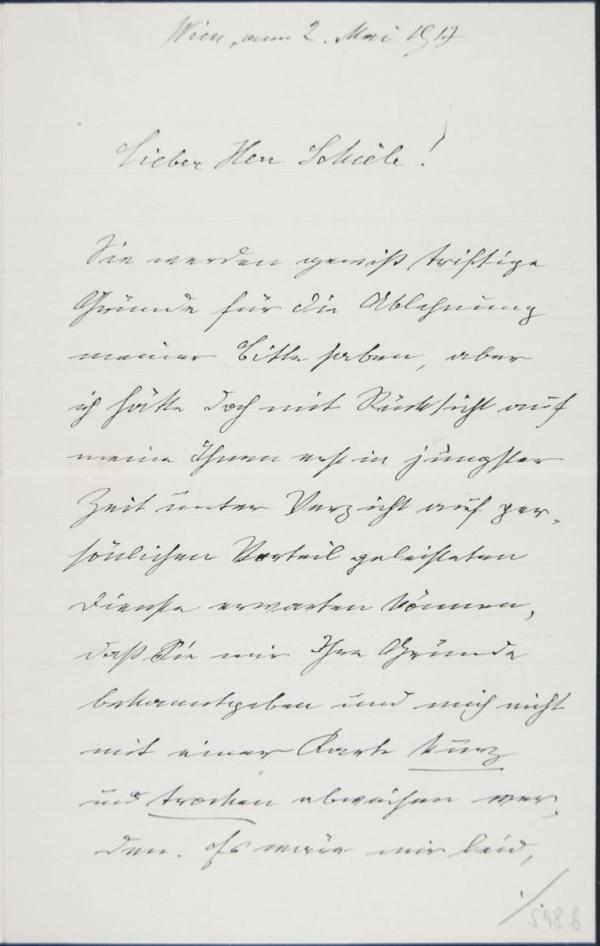 Wien, am 2. Mai 1917
Lieber Herr Schiele!
Sie werden gewiß triftige
Gründe für die Ablehnung
meiner Bitte haben, aber
ich hätte doch mit Rücksicht auf
meine Ihnen erst in jüngster
Zeit unter Verzicht auf per-
sönlichen Vorteil geleisteten
Dienste erwarten können,
daß Sie mir Ihre Gründe
bekanntgeben und mich nicht
mit einer Karte kurz
und trocken abweisen wer-
den. Es wäre mir leid,
598 b